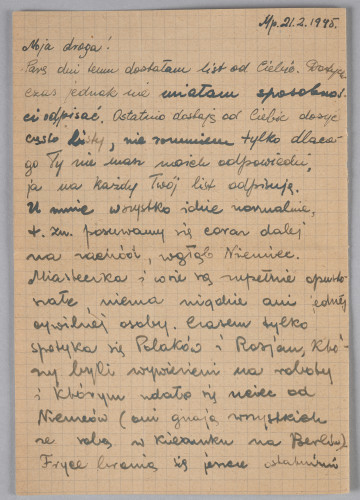 Mp. 21.2.1945.
Moja droga!
Parę dni temu dostałam list od Ciebie. Dłuższy
czas jednak nie miałam sposobnoś-
ci odpisać. Ostatnio dostaję od Ciebie dosyć
często listy, nie rozumiem tylko dlacze-
go Ty nie masz moich odpowiedzi,
ja na każdy Twój list odpisuję.
U mnie wszystko idzie normalnie,
t. zn. posuwamy się coraz dalej
na zachód, wgłąb Niemiec.
Miasteczka i wsie są zupełnie opusto-
szałe niema nigdzie ani jednej
cywilnej osoby. Czasem tylko
spotyka się Polaków i Rosjan, któ-
rzy byli wywiezieni na roboty
i którym udało się uciec od
Niemców (oni gnają wszystkich
ze sobą w kierunku na Berlin).
Fryce bronią się jeszcze ostatnimi